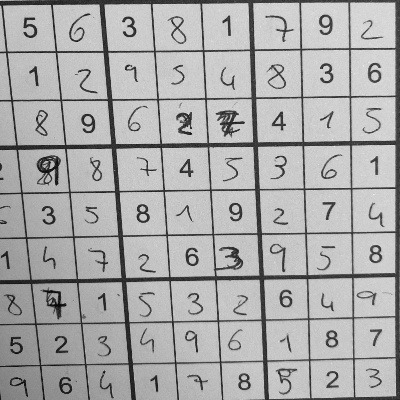 5 6 3 8 1 7 9 2
1 2 9 5 4 8 3 6
8 9 6 2 7 4 1 5
2 9 8 7 4 5 3 6 1
3 5 8 1 9 2 7 4
1 4 7 2 6 3 9 5 8
8 7 1 5 3 2 6 4 9
5 2 3 4 9 6 1 8 7
9 6 4 1 7 8 5 2 3